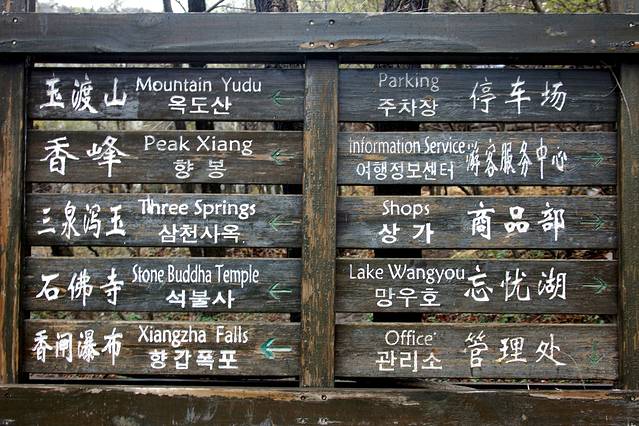 玉渡山 Mountain Yudu
옥도산
香峰 Peak Xiang
향봉
三泉泻玉 Three Springs
삼천사옥
石佛寺 Stone Buddha Temple
석불사
香闸瀑布 Xiangzha Falls
향갑폭포
Parking 停车场
주차장
Information Service 游客服务中心
여행정보센터
Shops 商品部
상가
Lake Wangyou 忘忧湖
망우호
Office 管理处
관리소